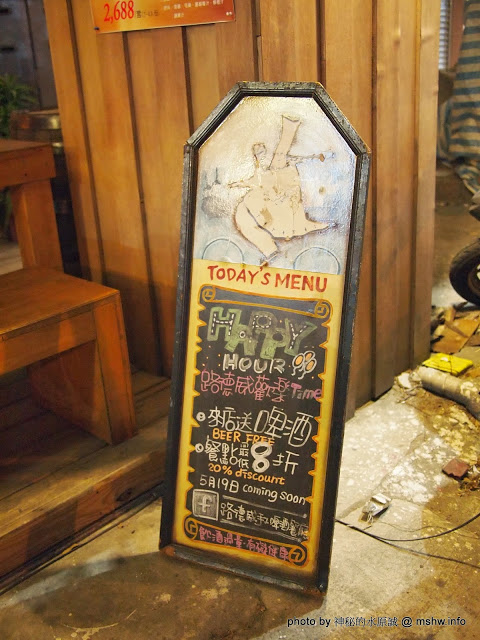 2,688
TODAY'S MENU
HAPPY
HOUR
路德威歡聚Time
來店送啤酒
BEER FREE
餐點最低8折
20% discount
5月19日 coming soon
f 路德威
photo by 神秘的水原誠 @ mshw.info